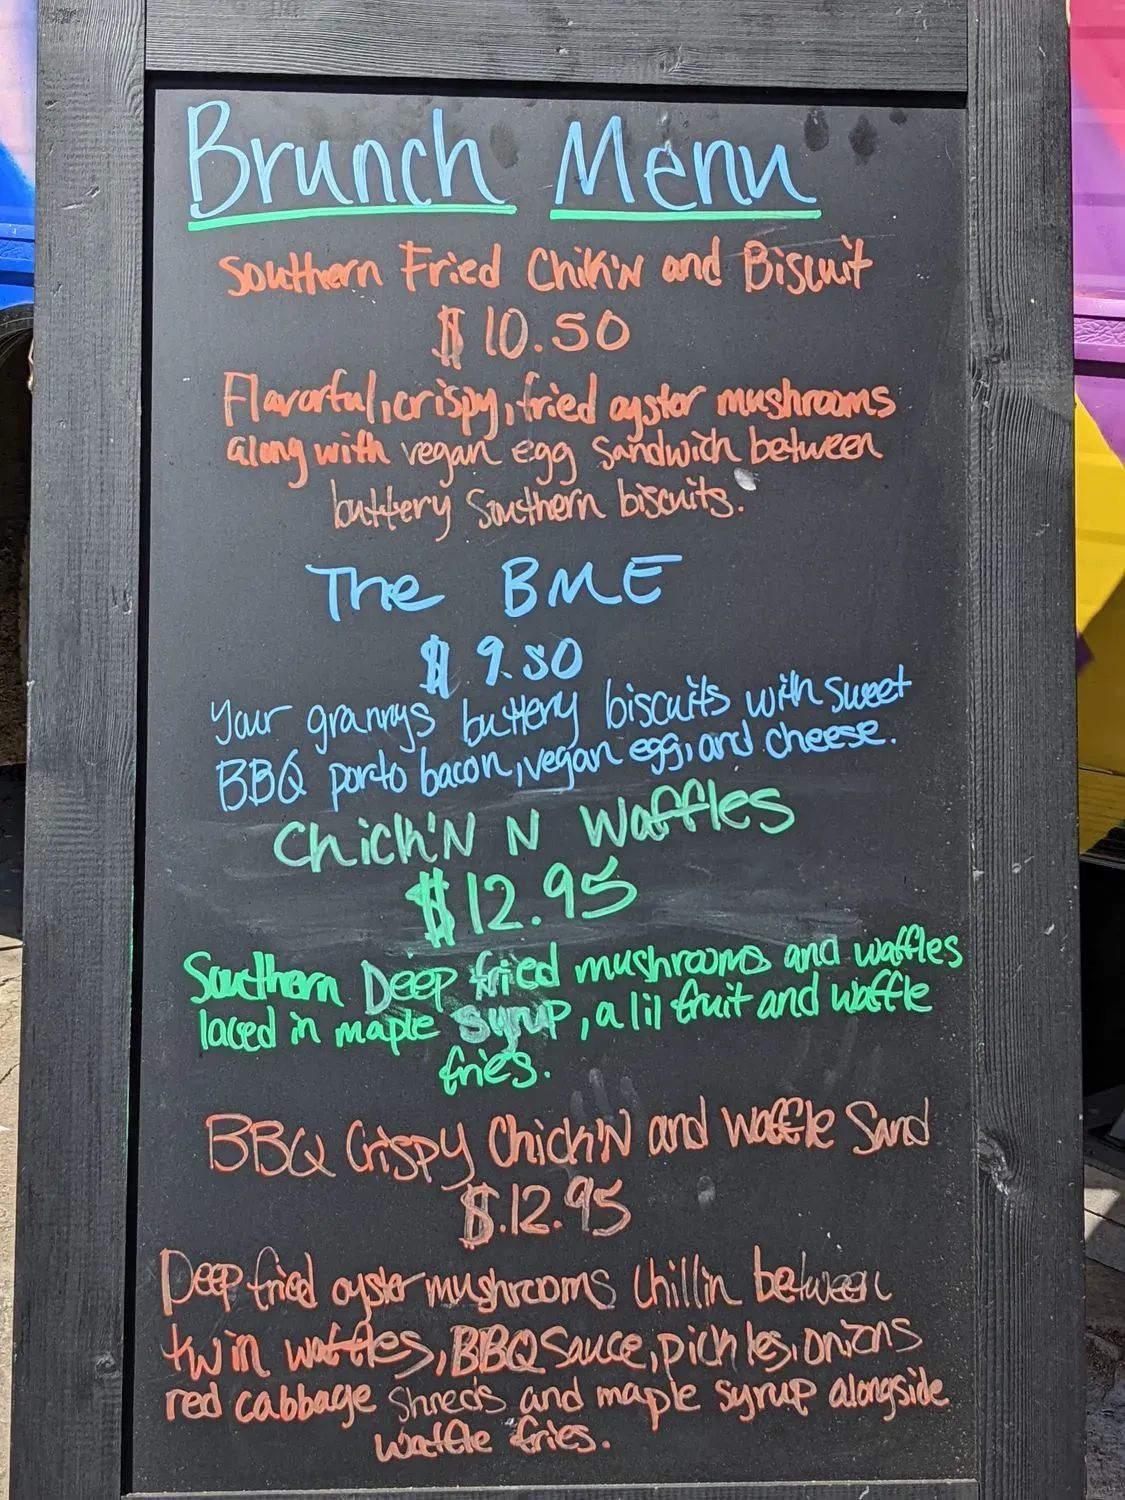 Brunch Menu
Southern Fried Chik'N and Biscuit
$10.50
Flavorful, crispy, fried oyster mushrooms
along with vegan egg sandwich between
buttery Southern biscuits.
The BME
$9.50
Your grannys buttery biscuits with sweet
BBQ porto bacon, vegan egg, and cheese.
Chick'N N Waffles
$12.95
Southern Deep fried mushrooms and waffles
laced in maple syrup, a lil fruit and waffle
fries.
BBQ Crispy Chick'N and Waffle Sand
$.12.95
Deep fried oyster mushrooms chillin between
twin waffles, BBQ Sauce, pickles, onions
red cabbage shreds and maple syrup alongside
waffle fries.